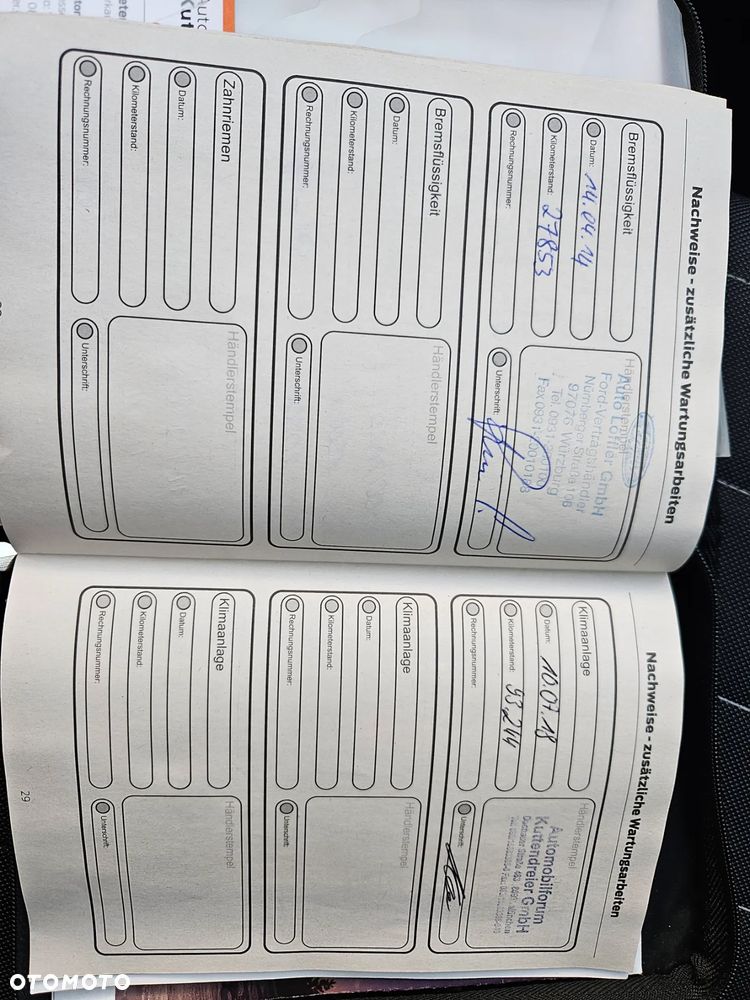 Nachweise - zusätzliche Wartungsarbeiten
Bremsflüssigkeit
Datum: 14.04.14
Kilometerstand: 27853
Rechnungsnummer:
Händlerstempel
Auto Löffler GmbH
Ford-Vertragshändler
Nürnberger Straße 106
97076 Würzburg
Unterschrift:
Bremsflüssigkeit
Datum:
Kilometerstand:
Rechnungsnummer:
Händlerstempel
Unterschrift:
Zahnriemen
Datum:
Kilometerstand:
Rechnungsnummer:
Händlerstempel
Unterschrift:
Nachweise - zusätzliche Wartungsarbeiten
Klimaanlage
Datum: 10.07.18
Kilometerstand: 93244
Rechnungsnummer:
Händlerstempel
Automobilforum
Kuttendreier GmbH
Unterschrift:
Klimaanlage
Datum:
Kilometerstand:
Rechnungsnummer:
Händlerstempel
Unterschrift:
Klimaanlage
Datum:
Kilometerstand:
Rechnungsnummer:
Händlerstempel
Unterschrift:
29
OTOMOTO